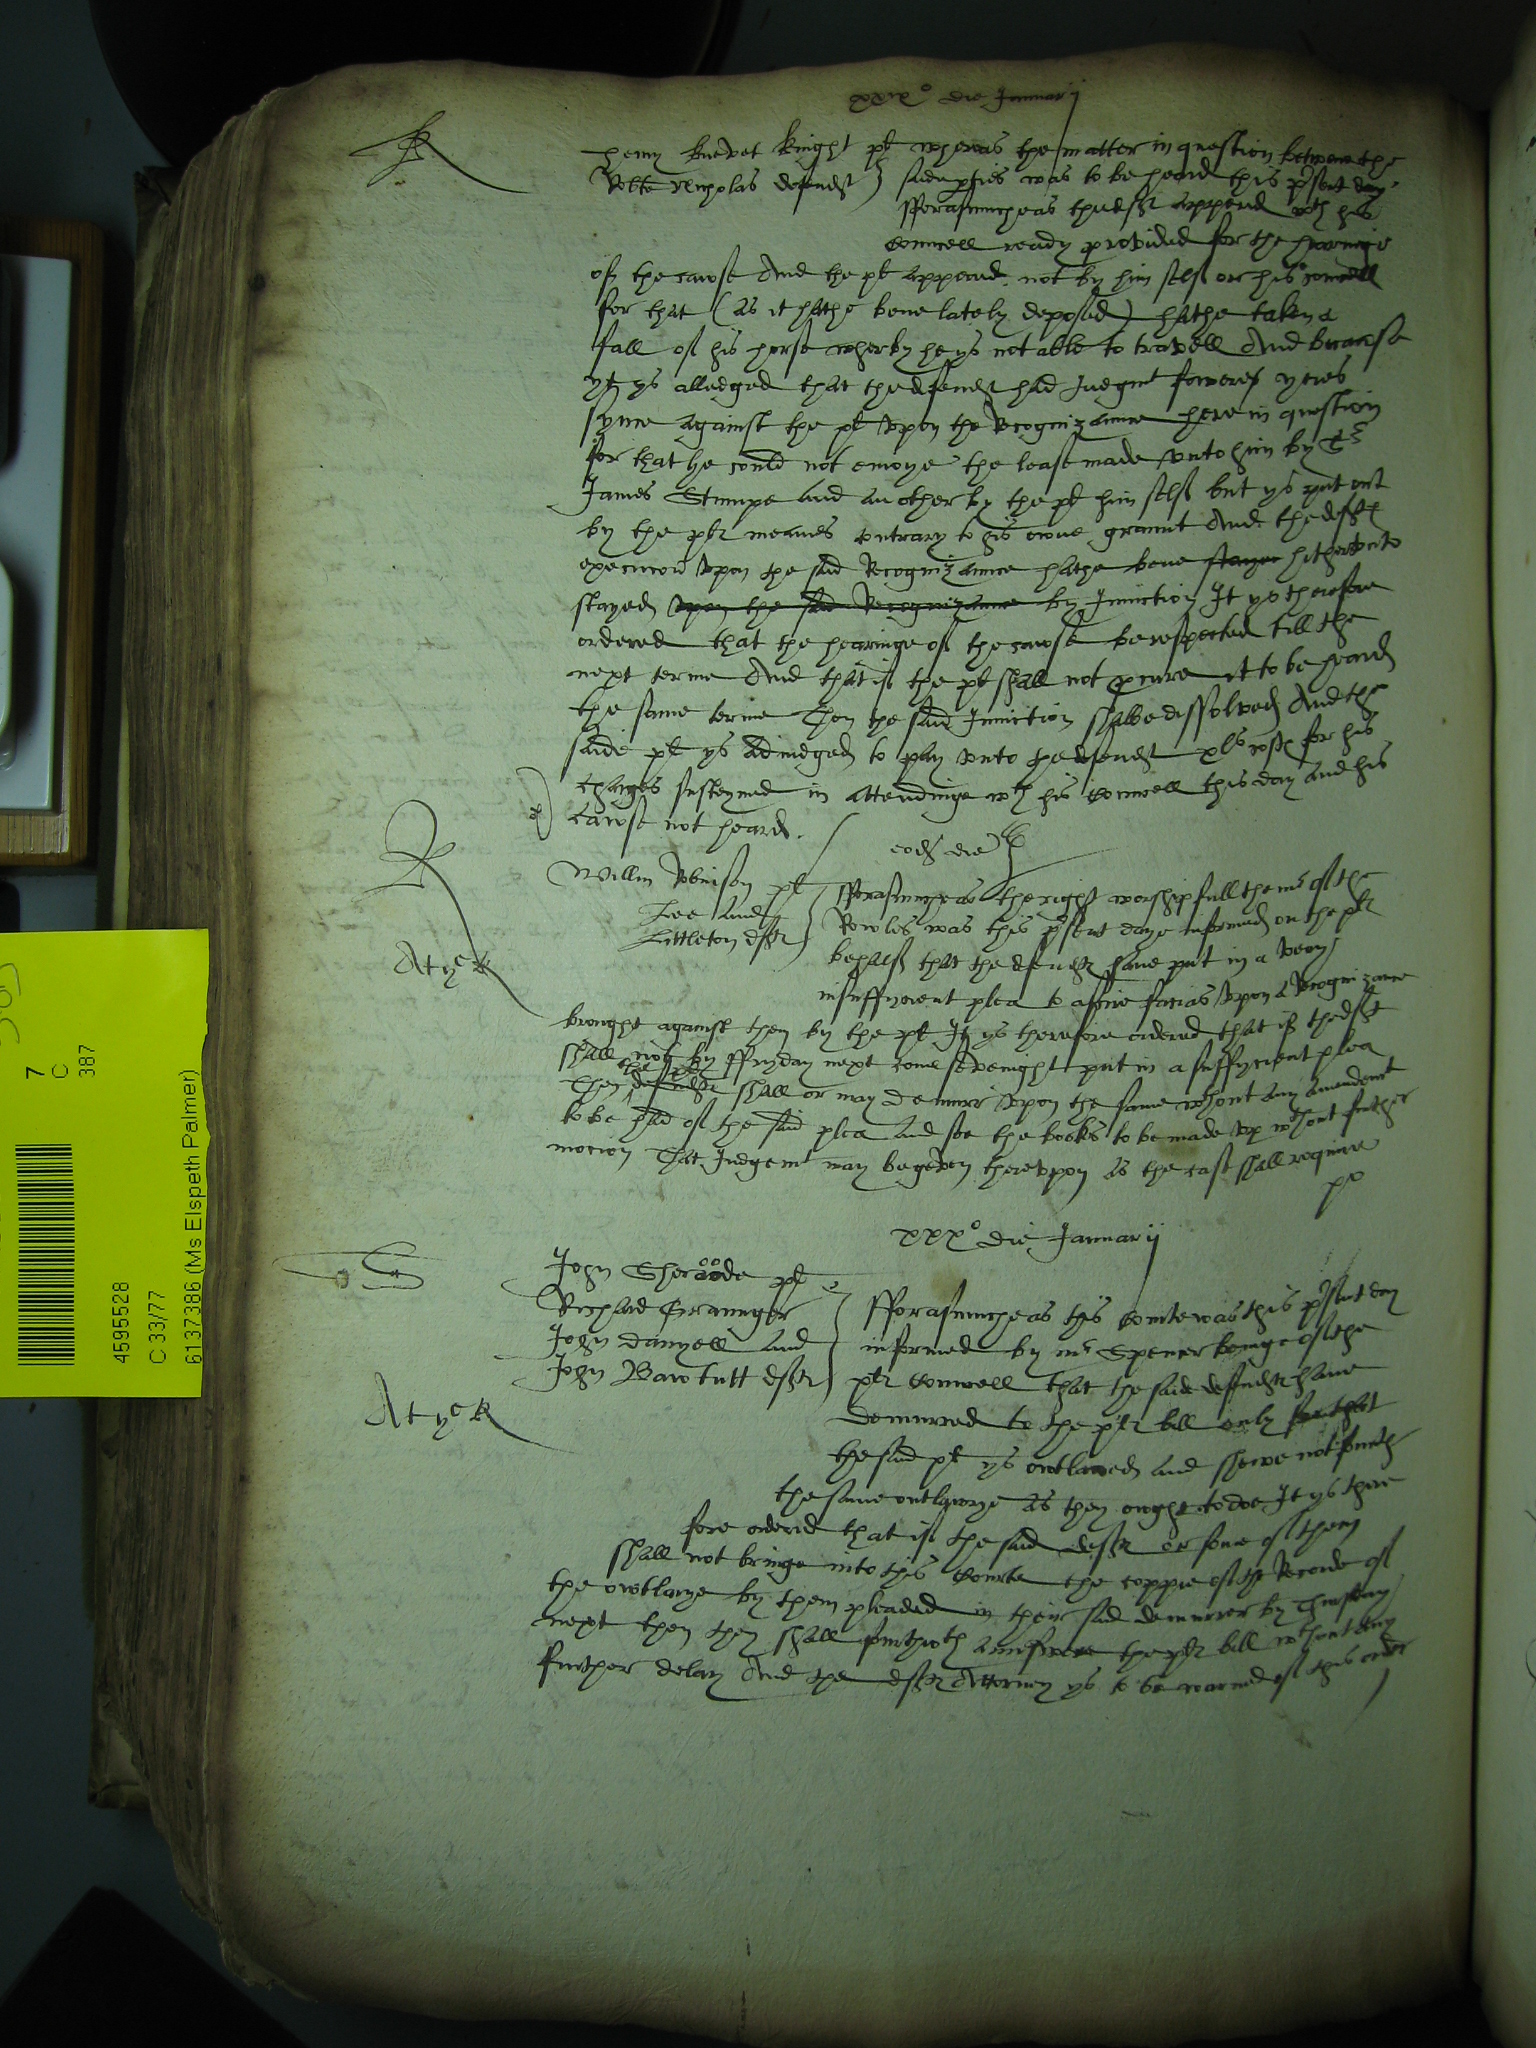 xxix° die Januarij
K
henry knevet knight pl whereas the matter in question betwene the
Robte Nicholas defendt saide pties was to be heard this psent day
fforasmucheas the deft appered wth his
councell ready provided for the hearinge
of the cawse And the pl appeared not by him self or his councell
for that (as it hathe bene lately deposed) hathe taken a
fall of his horse wherby he ys not able to travell And because
yt ys alledged that the defendt had Judgmt yeres
synce against the pl vpon the Recognizaunce here in question
for that he could not enioye the lease made vnto him by Sr
James Stumpe and another by the pl him self but ys put out
by the plt meanes contrary to his owne graunt And the deftes
execucion vpon the said Recognizaunce hathe bene stayed hitherunto
stayed vpon the said Recognizaunce by Iniunction It ys therefore
ordered that the hearinge of the cawse be respected till the
next terme And that if the pl shall not pcure it to be heard
the same terme Then the said Iniunction shalbe dissolved And the
saide pl ys adiudged to pay vnto the defendt xls for his
charges susteyned in attendinge wth his councell this day and his
cawse not heard.
eod die
R
Willm Robinson pl fforasmucheas the right worshipfull the mr of the
Lee and Rowles was this psent daye informed on the plt
Littleton deft behalf that the defendt have put in a very
Atye R
insuffycient plea to a scire facias vpon a Recognizance
brought against them by the pl It ys therefore ordered that if the deft
shall not by ffryday next come sevenight put in a suffycient plea
Then the pl defendt shall or may demurr vpon the same wthout any amendmt
to be had of the said plea and soe the bookes to be made vp wthout further
mocion That Judgemt may be geven therevpon as the case shall require
po
xxx° die Januarij
S
John Sherwode pl
Richard Graunger fforasmucheas this courte was this psent day
John Danyell and informed by mr Spencer beinge of the
John Barotutt deft plt councell that the saide defendt have
Atye R
demurred to the plt bill only for that
the said pl ys owtlawed and shewe not furth
the same outlawrye as they ought to doe It ys there
fore ordered that if the said deft or some of them
shall not bringe into this courte the coppie of the Recorde of
the owtlarye by them pleaded in their said demurrer by Thursday
next then they shall furthwth answere the plt bill wthout any
further delay And the deft Attorney ys to be warned of this order
7
C
387
4595528
C 33/77
6137386 (Ms Elspeth Palmer)